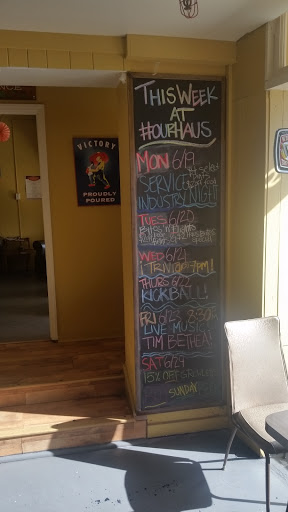 THIS WEEK
AT
#OURHAUS
MON 6/19
SERVICE
INDUSTRY NIGHT!
TUES 6/20
WED 6/21
TRIVIA @ 7pm!
THURS 6/22
KICKBALL!
FRI 6/23 8:30
LIVE MUSIC!
TIM BETHEA!
SAT 6/24
15% OFF GROWLERS
SUNDAY
VICTORY
PROUDLY
POURED